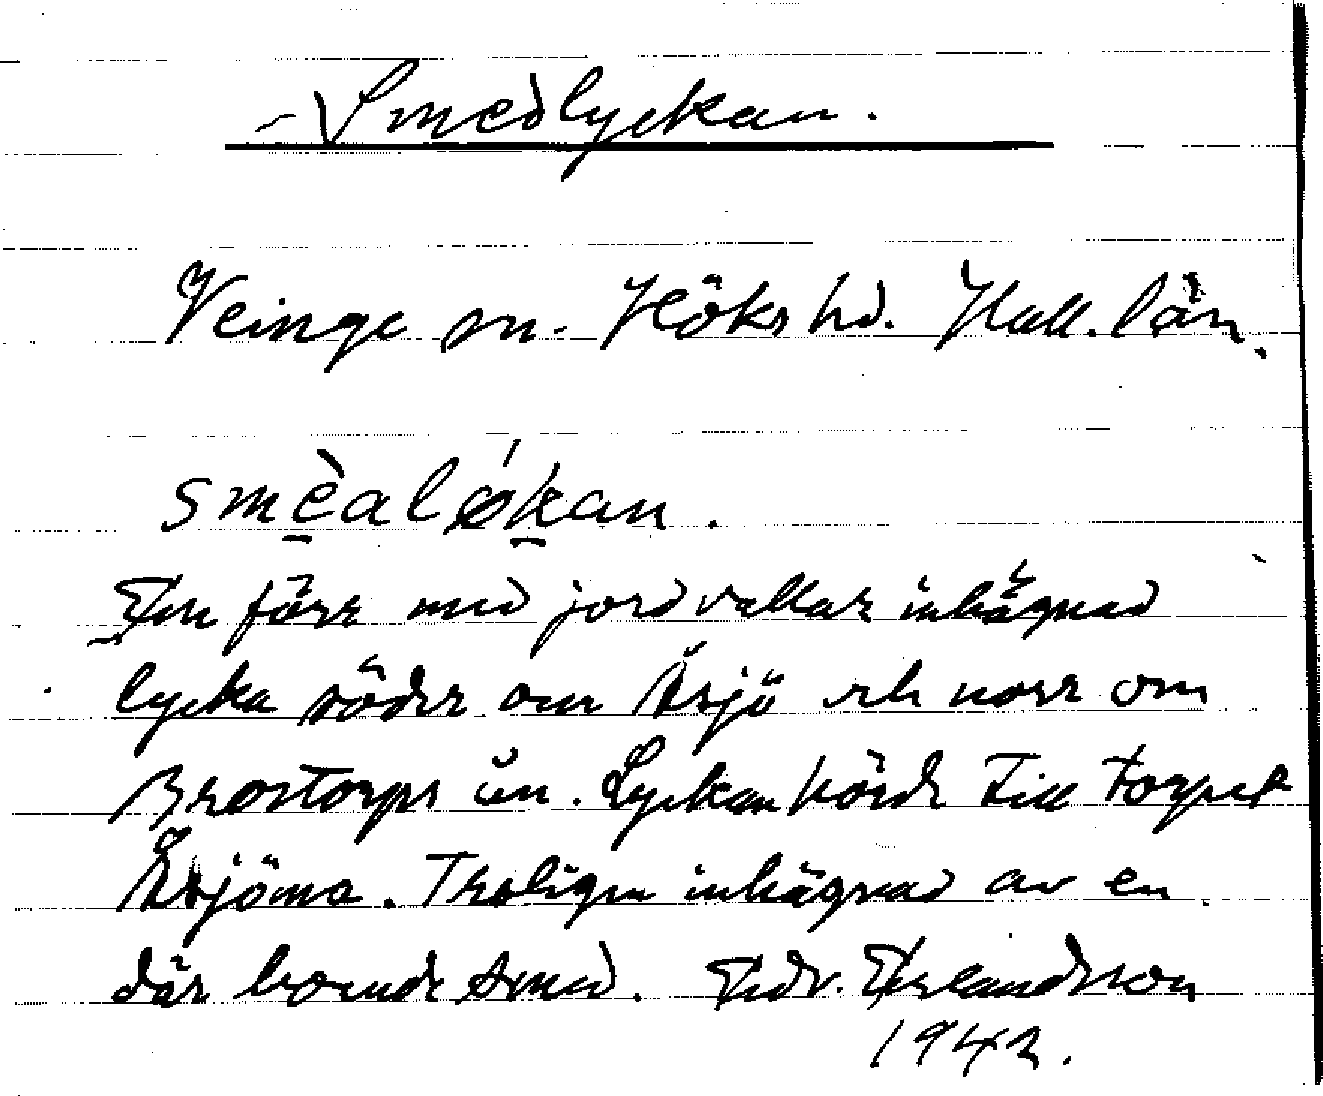 Smedlyckan.
Veinge sn. Höks hd. Hall. län.
smèaløkan.
En förr med jordvallar inhägnad
lycka söder om Åsjö och norr om
Brostorps ån. Lyckan hörde till torpet
Åsjöma. Troligen inhägnad av en
där boende smed. Edv. Erlandsson
1942.